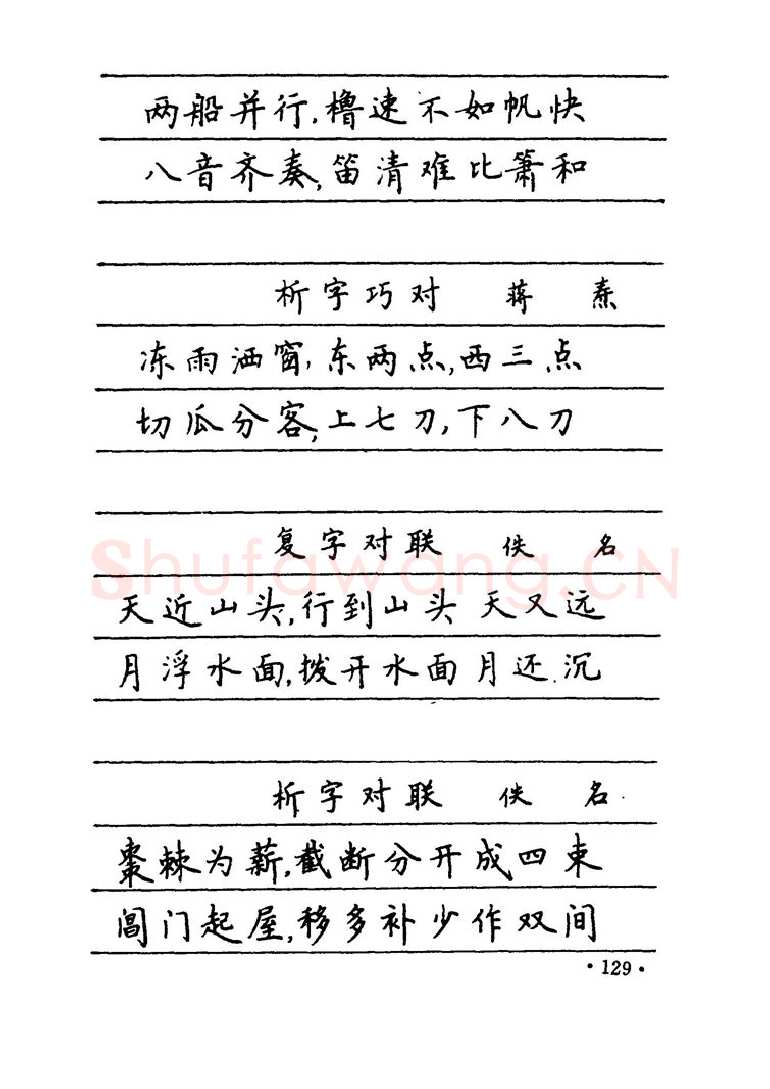 两船并行,橹速不如帆快
八音齐奏,笛清难比箫和
析字巧对 蒋焘
冻雨洒窗,东两点,西三点
切瓜分客,上七刀,下八刀
复字对联 佚名
天近山头,行到山头天又远
月浮水面,拨开水面月还沉
析字对联 佚名
枣棘为薪,截断分开成四束
阊门起屋,移多补少作双间
·129·
Shufawang.CN